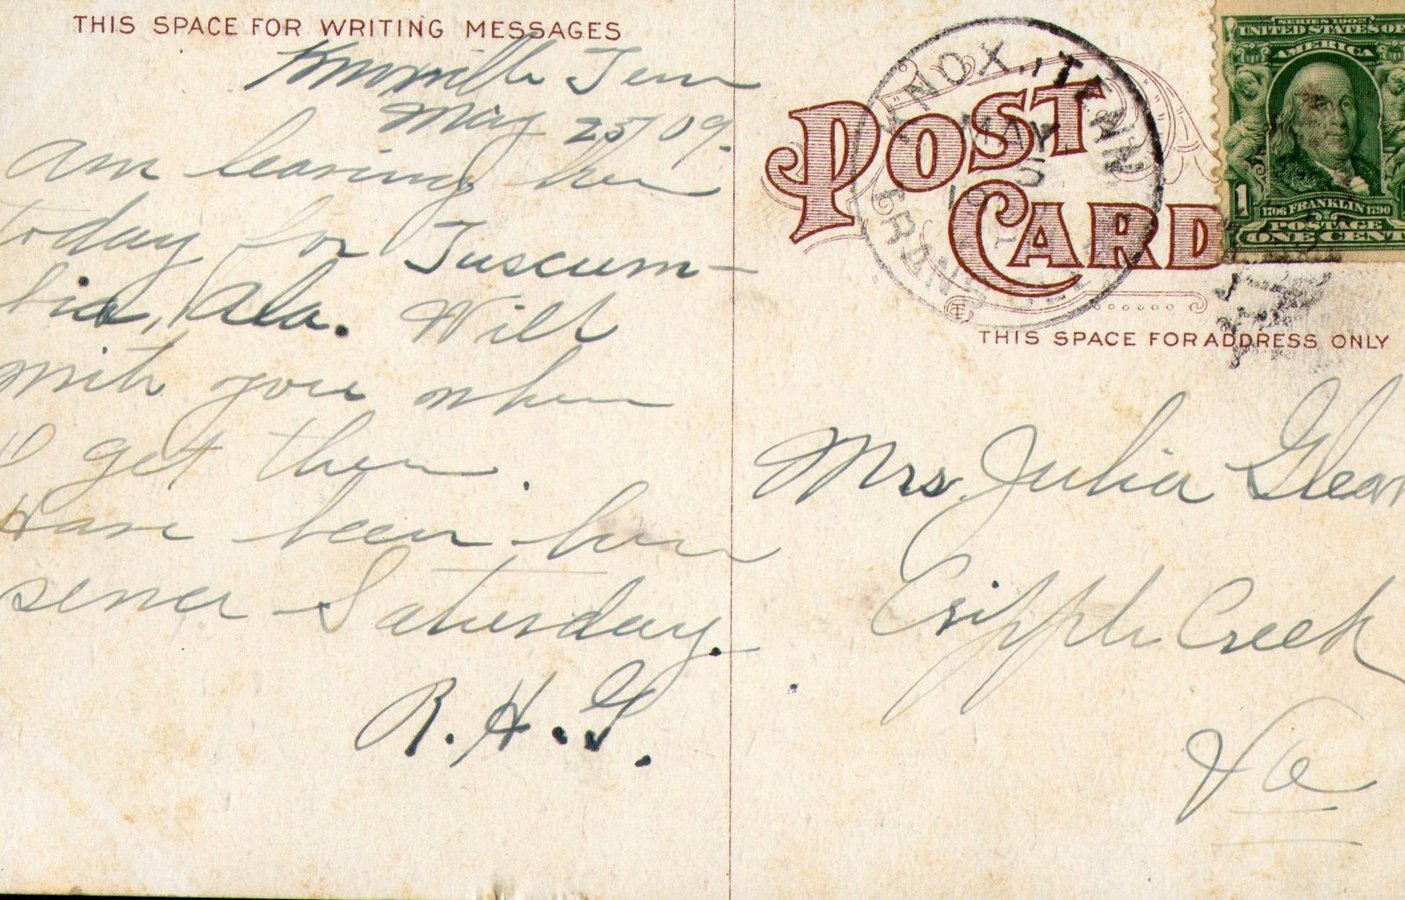 THIS SPACE FOR WRITING MESSAGES
Knoxville Tenn
May 25/09.
Am leaving here
today for Tuscum-
bia, Ala. Will
write you when
I get there.
Have been here
since Saturday.
R. H. G.
POST
CARD
KNOX., TENN
MAY
TRANSIT
SERIES 1902
UNITED STATES OF
AMERICA
1
1706 FRANKLIN 1790
POSTAGE
ONE CENT
THIS SPACE FOR ADDRESS ONLY
Mrs. Julia
Cripple Creek
Va